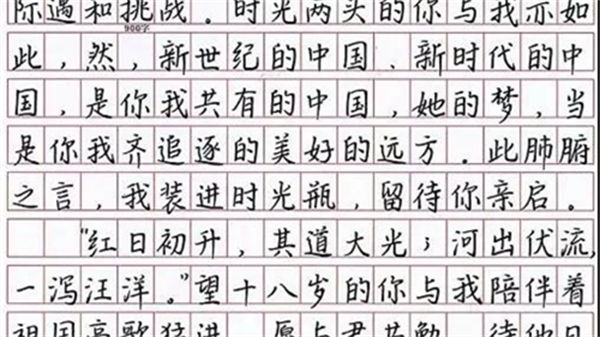 际遇和挑战。时光两头的你与我亦如
900字
此，然，新世纪的中国、新时代的中
国，是你我共有的中国，她的梦，当
是你我齐追逐的美好的远方。此肺腑
之言，我装进时光瓶，留待你亲启。
"红日初升，其道大光；河出伏流，
一泻汪洋。"望十八岁的你与我陪伴着
祖国高歌猛进，愿与君共勉，待他日